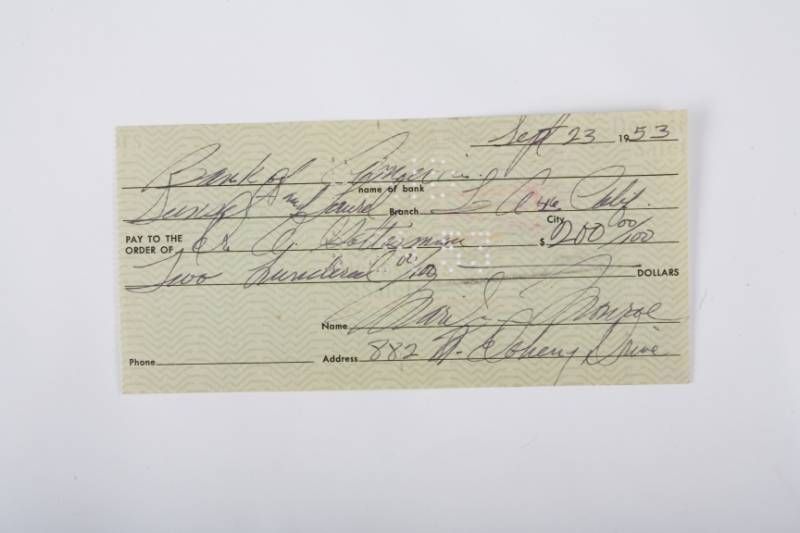 Sept 23 1953
Bank of America
name of bank
Sunset and Laurel Branch L A 46, Calif.
City
PAY TO THE ORDER OF $ 200 00/100
Two hundred 00/100 DOLLARS
Name Marilyn Monroe
Phone Address 882 N. Doheny Drive